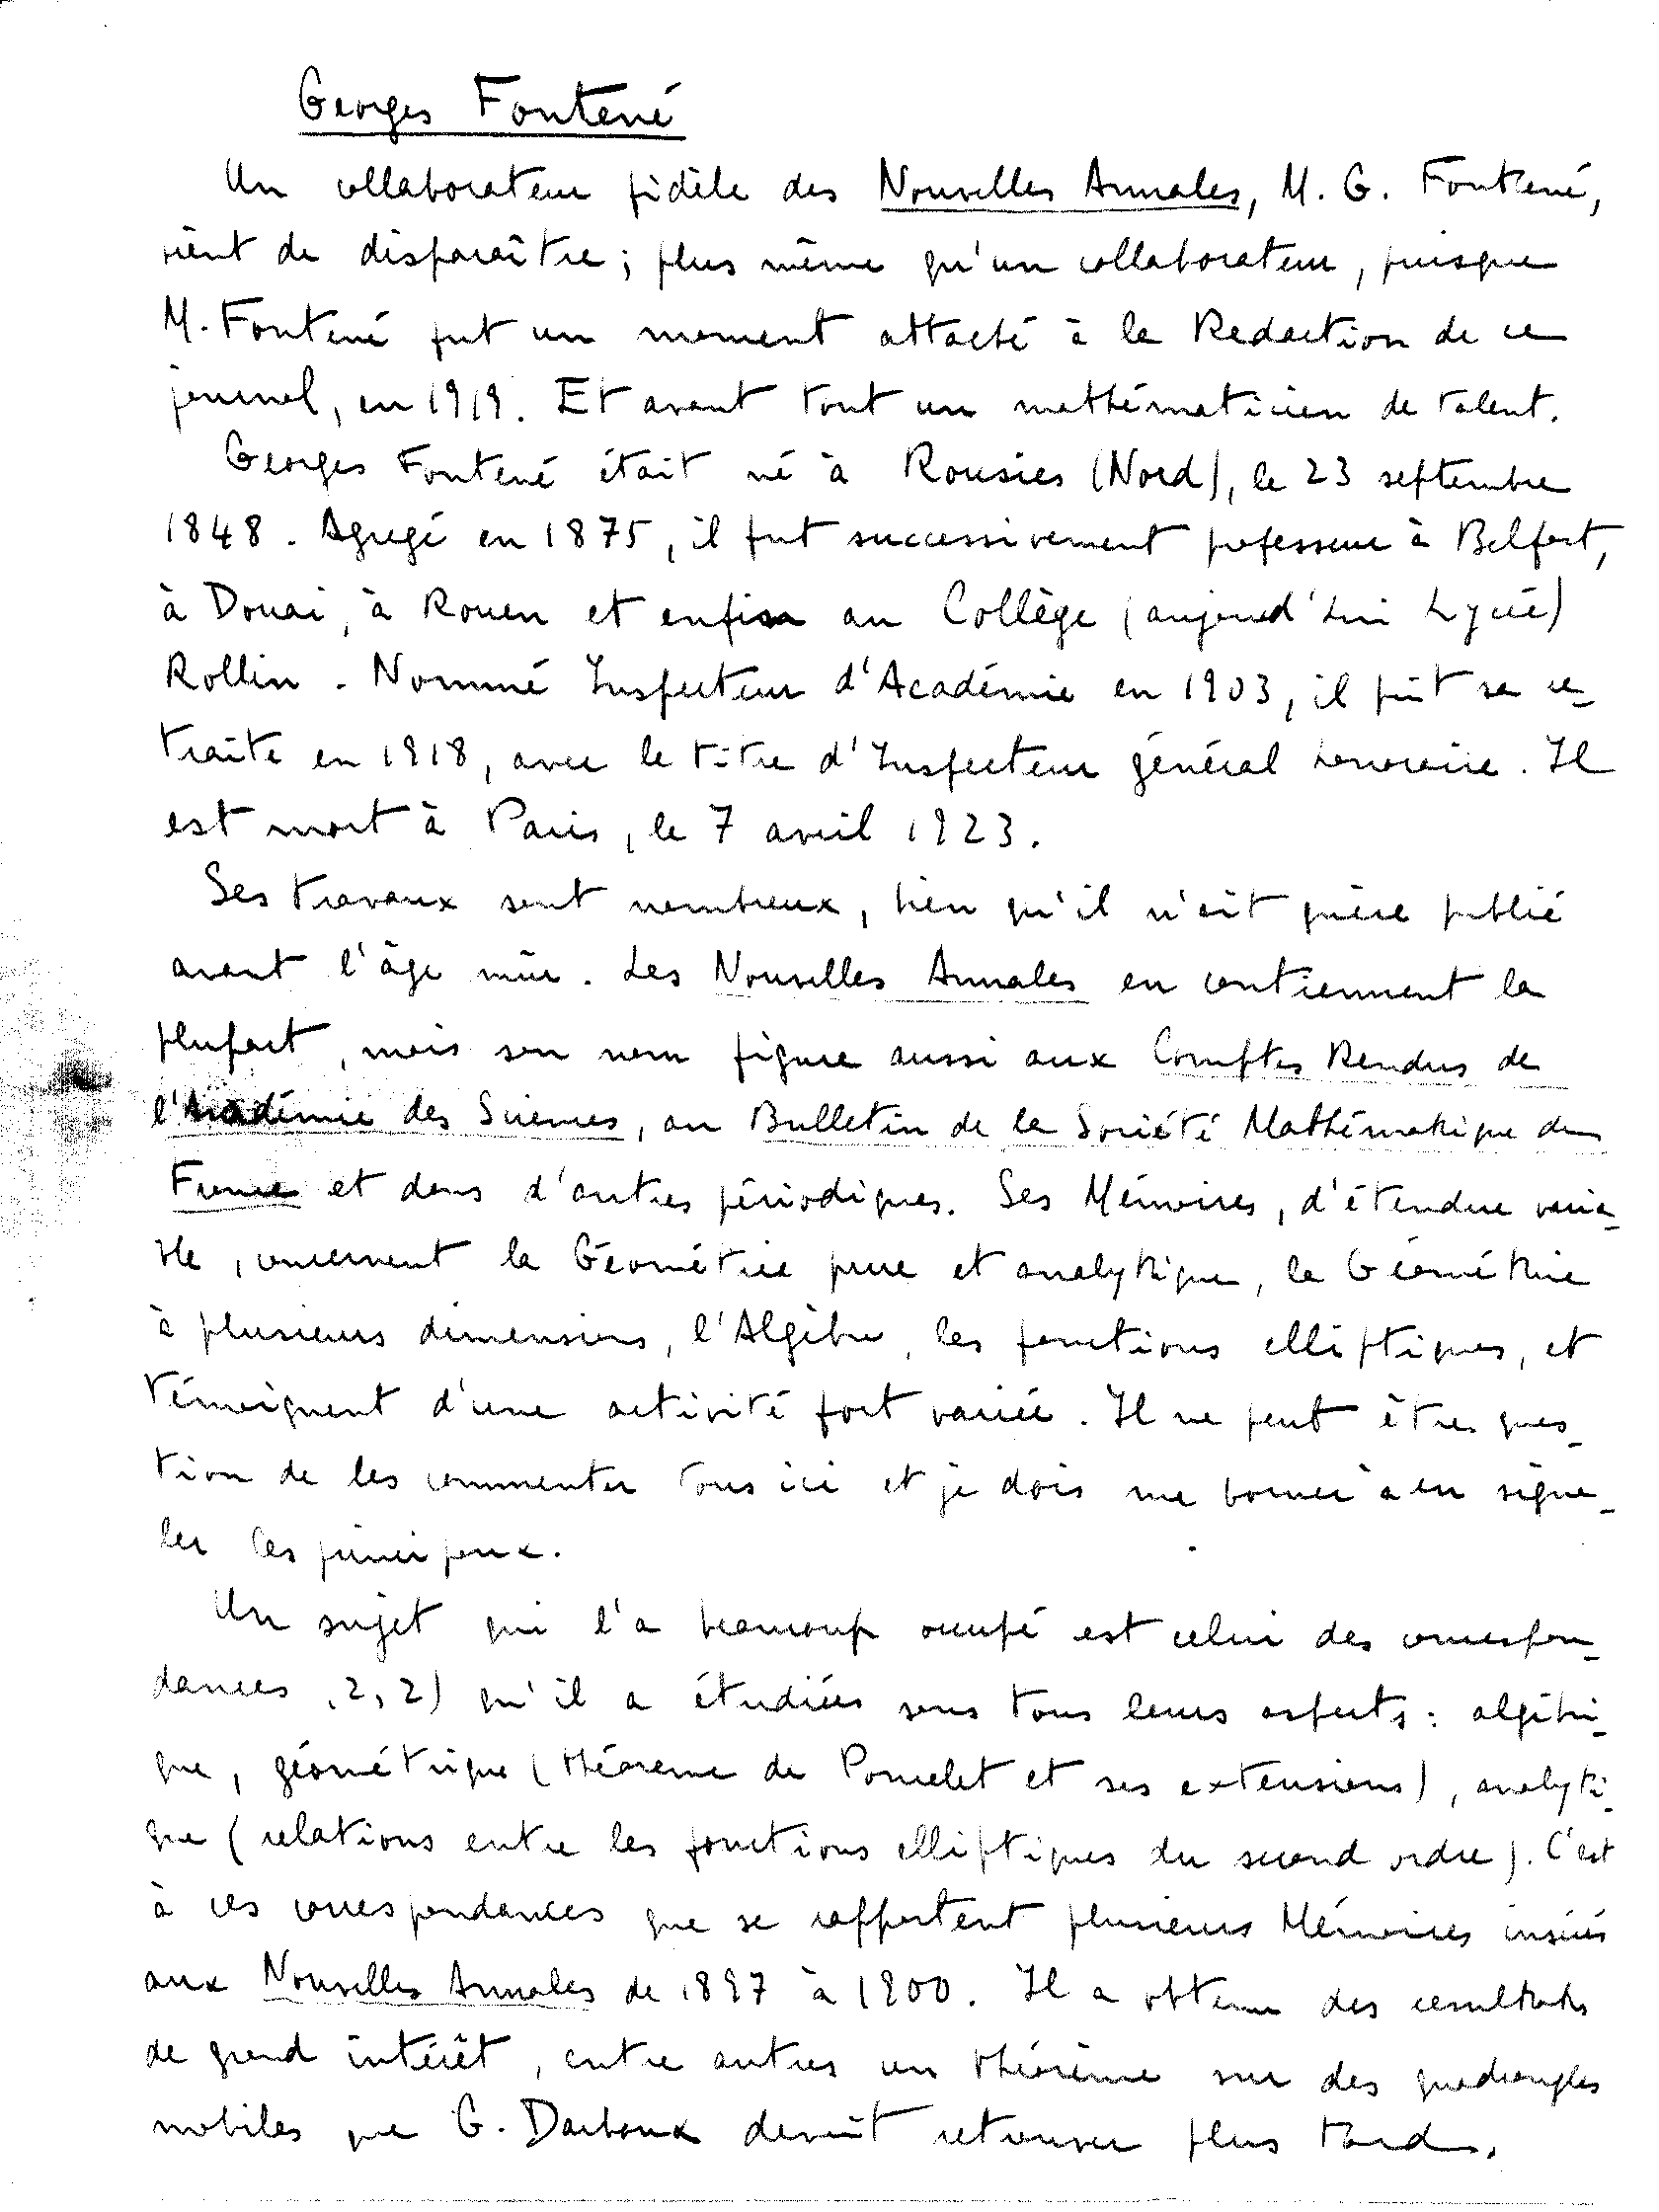 Georges Fontené
Un collaborateur fidèle des Nouvelles Annales, M. G. Fontené,
vient de disparaître ; plus même qu'un collaborateur, puisque
M. Fontené fut un moment attaché à la Redaction de ce
journal, en 1919. Et avant tout un mathématicien de talent.
Georges Fontené était né à Rousies (Nord), le 23 septembre
1848. Agrégé en 1875, il fut successivement professeur à Belfort,
à Douai, à Rouen et enfin au Collège (aujourd'hui Lycée)
Rollin. Nommé Inspecteur d'Académie en 1903, il prit sa re-
traite en 1918, avec le titre d'Inspecteur général honoraire. Il
est mort à Paris, le 7 avril 1923.
Ses travaux sont nombreux, bien qu'il n'ait guère publié
avant l'âge mûr. Les Nouvelles Annales en contiennent la
plupart, mais son nom figure aussi aux Comptes Rendus de
l'Académie des Sciences, au Bulletin de la Société Mathématique de
France et dans d'autres périodiques. Ses Mémoires, d'étendue varia-
ble, concernent la Géométrie pure et analytique, la Géométrie
à plusieurs dimensions, l'Algèbre, les fonctions elliptiques, et
témoignent d'une activité fort variée. Il ne peut être ques-
tion de les commenter tous ici et je dois me borner à en signa-
ler les principaux.
Un sujet qui l'a beaucoup occupé est celui des correspon-
dances (2, 2) qu'il a étudiées sous tous leurs aspects : algébri-
que, géométrique (théoreme de Poncelet et ses extensions), analyti-
que (relations entre les fonctions elliptiques du second ordre). C'est
à ces correspondances que se rapportent plusieurs Mémoires insérés
aux Nouvelles Annales de 1897 à 1900. Il a obtenu des resultats
de grand intérêt, entre autres un théorème sur des quadrangles
mobiles que G. Darboux devait retrouver plus tard.